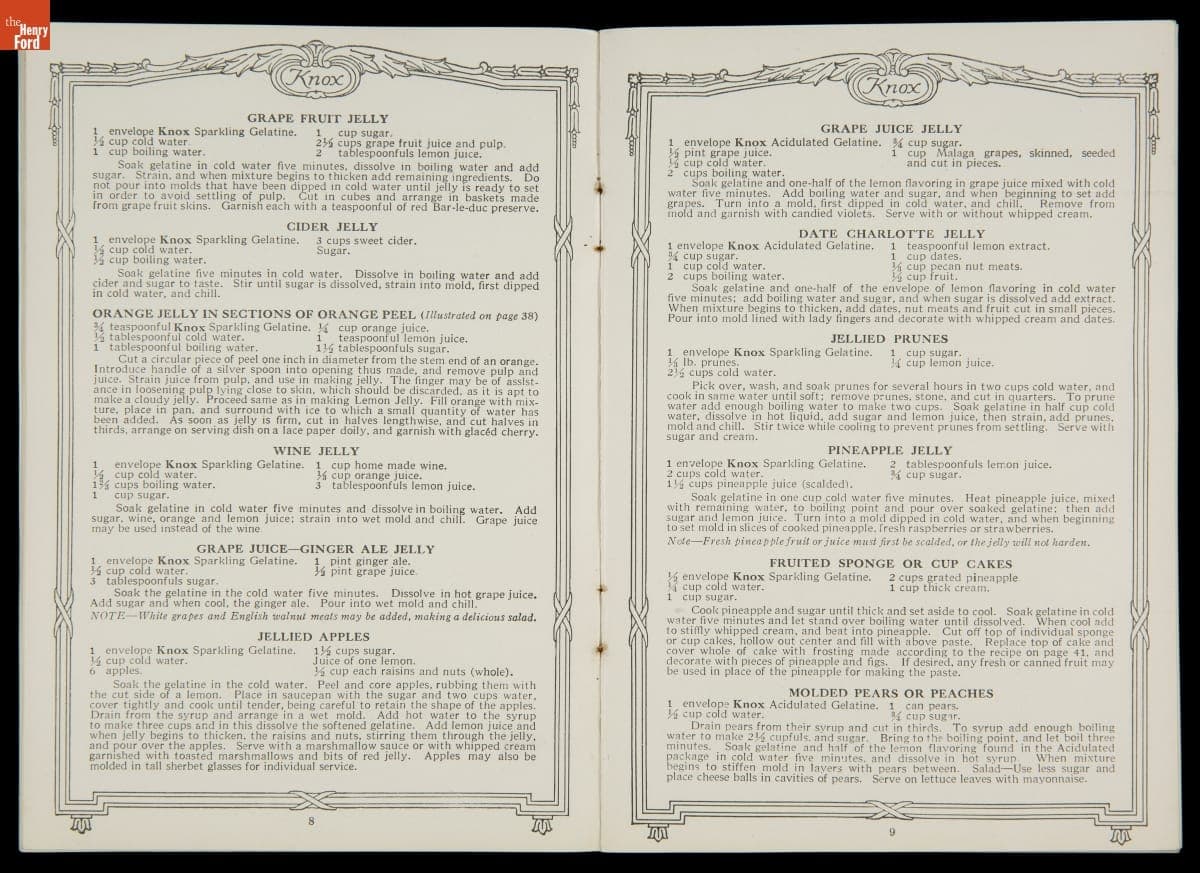 the
Henry
Ford
Knox
GRAPE FRUIT JELLY
1 envelope Knox Sparkling Gelatine. 1 cup sugar.
½ cup cold water. 2½ cups grape fruit juice and pulp.
1 cup boiling water. 2 tablespoonfuls lemon juice.
Soak gelatine in cold water five minutes, dissolve in boiling water and add
sugar. Strain, and when mixture begins to thicken add remaining ingredients. Do
not pour into molds that have been dipped in cold water until jelly is ready to set
in order to avoid settling of pulp. Cut in cubes and arrange in baskets made
from grape fruit skins. Garnish each with a teaspoonful of red Bar-le-duc preserve.
CIDER JELLY
1 envelope Knox Sparkling Gelatine. 3 cups sweet cider.
½ cup cold water. Sugar.
½ cup boiling water.
Soak gelatine five minutes in cold water. Dissolve in boiling water and add
cider and sugar to taste. Stir until sugar is dissolved, strain into mold, first dipped
in cold water, and chill.
ORANGE JELLY IN SECTIONS OF ORANGE PEEL (Illustrated on page 38)
¾ teaspoonful Knox Sparkling Gelatine. ¼ cup orange juice.
½ tablespoonful cold water. 1 teaspoonful lemon juice.
1 tablespoonful boiling water. 1½ tablespoonfuls sugar.
Cut a circular piece of peel one inch in diameter from the stem end of an orange.
Introduce handle of a silver spoon into opening thus made, and remove pulp and
juice. Strain juice from pulp, and use in making jelly. The finger may be of assist-
ance in loosening pulp lying close to skin, which should be discarded, as it is apt to
make a cloudy jelly. Proceed same as in making Lemon Jelly. Fill orange with mix-
ture, place in pan, and surround with ice to which a small quantity of water has
been added. As soon as jelly is firm, cut in halves lengthwise, and cut halves in
thirds, arrange on serving dish on a lace paper doily, and garnish with glacéd cherry.
WINE JELLY
1 envelope Knox Sparkling Gelatine. 1 cup home made wine.
½ cup cold water. ⅓ cup orange juice.
cups boiling water. 3 tablespoonfuls lemon juice.
1 cup sugar.
Soak gelatine in cold water five minutes and dissolve in boiling water. Add
sugar, wine, orange and lemon juice; strain into wet mold and chill. Grape juice
may be used instead of the wine
GRAPE JUICE—GINGER ALE JELLY
1 envelope Knox Sparkling Gelatine. 1 pint ginger ale.
½ cup cold water. ½ pint grape juice.
3 tablespoonfuls sugar.
Soak the gelatine in the cold water five minutes. Dissolve in hot grape juice.
Add sugar and when cool, the ginger ale. Pour into wet mold and chill.
NOTE—White grapes and English walnut meats may be added, making a delicious salad.
JELLIED APPLES
1 envelope Knox Sparkling Gelatine. 1½ cups sugar.
½ cup cold water. Juice of one lemon.
6 apples. ½ cup each raisins and nuts (whole).
Soak the gelatine in the cold water. Peel and core apples, rubbing them with
the cut side of a lemon. Place in saucepan with the sugar and two cups water,
cover tightly and cook until tender, being careful to retain the shape of the apples.
Drain from the syrup and arrange in a wet mold. Add hot water to the syrup
to make three cups and in this dissolve the softened gelatine. Add lemon juice and
when jelly begins to thicken, the raisins and nuts, stirring them through the jelly,
and pour over the apples. Serve with a marshmallow sauce or with whipped cream
garnished with toasted marshmallows and bits of red jelly. Apples may also be
molded in tall sherbet glasses for individual service.
8
Knox
GRAPE JUICE JELLY
1 envelope Knox Acidulated Gelatine. ¾ cup sugar.
½ pint grape juice. 1 cup Malaga grapes, skinned, seeded
½ cup cold water. and cut in pieces.
2 cups boiling water.
Soak gelatine and one-half of the lemon flavoring in grape juice mixed with cold
water five minutes. Add boiling water and sugar, and when beginning to set add
grapes. Turn into a mold, first dipped in cold water, and chill. Remove from
mold and garnish with candied violets. Serve with or without whipped cream.
DATE CHARLOTTE JELLY
1 envelope Knox Acidulated Gelatine. 1 teaspoonful lemon extract.
¾ cup sugar. 1 cup dates.
1 cup cold water. ½ cup pecan nut meats.
2 cups boiling water. ½ cup fruit.
Soak gelatine and one-half of the envelope of lemon flavoring in cold water
five minutes; add boiling water and sugar, and when sugar is dissolved add extract.
When mixture begins to thicken, add dates, nut meats and fruit cut in small pieces.
Pour into mold lined with lady fingers and decorate with whipped cream and dates.
JELLIED PRUNES
1 envelope Knox Sparkling Gelatine. 1 cup sugar.
½ lb. prunes. ¼ cup lemon juice.
2½ cups cold water.
Pick over, wash, and soak prunes for several hours in two cups cold water, and
cook in same water until soft; remove prunes, stone, and cut in quarters. To prune
water add enough boiling water to make two cups. Soak gelatine in half cup cold
water, dissolve in hot liquid, add sugar and lemon juice, then strain, add prunes,
mold and chill. Stir twice while cooling to prevent prunes from settling. Serve with
sugar and cream.
PINEAPPLE JELLY
1 envelope Knox Sparkling Gelatine. 2 tablespoonfuls lemon juice.
2 cups cold water. ¾ cup sugar.
1½ cups pineapple juice (scalded).
Soak gelatine in one cup cold water five minutes. Heat pineapple juice, mixed
with remaining water, to boiling point and pour over soaked gelatine; then add
sugar and lemon juice. Turn into a mold dipped in cold water, and when beginning
to set mold in slices of cooked pineapple, fresh raspberries or strawberries.
Note—Fresh pineapple fruit or juice must first be scalded, or the jelly will not harden.
FRUITED SPONGE OR CUP CAKES
½ envelope Knox Sparkling Gelatine. 2 cups grated pineapple
¼ cup cold water. 1 cup thick cream.
1 cup sugar.
Cook pineapple and sugar until thick and set aside to cool. Soak gelatine in cold
water five minutes and let stand over boiling water until dissolved. When cool add
to stiffly whipped cream, and beat into pineapple. Cut off top of individual sponge
or cup cakes, hollow out center and fill with above paste. Replace top of cake and
cover whole of cake with frosting made according to the recipe on page 41, and
decorate with pieces of pineapple and figs. If desired, any fresh or canned fruit may
be used in place of the pineapple for making the paste.
MOLDED PEARS OR PEACHES
1 envelope Knox Acidulated Gelatine. 1 can pears.
½ cup cold water. ¾ cup sugar.
Drain pears from their syrup and cut in thirds. To syrup add enough boiling
water to make 2½ cupfuls, and sugar. Bring to the boiling point, and let boil three
minutes. Soak gelatine and half of the lemon flavoring found in the Acidulated
package in cold water five minutes, and dissolve in hot syrup. When mixture
begins to stiffen mold in layers with pears between. Salad—Use less sugar and
place cheese balls in cavities of pears. Serve on lettuce leaves with mayonnaise.
9